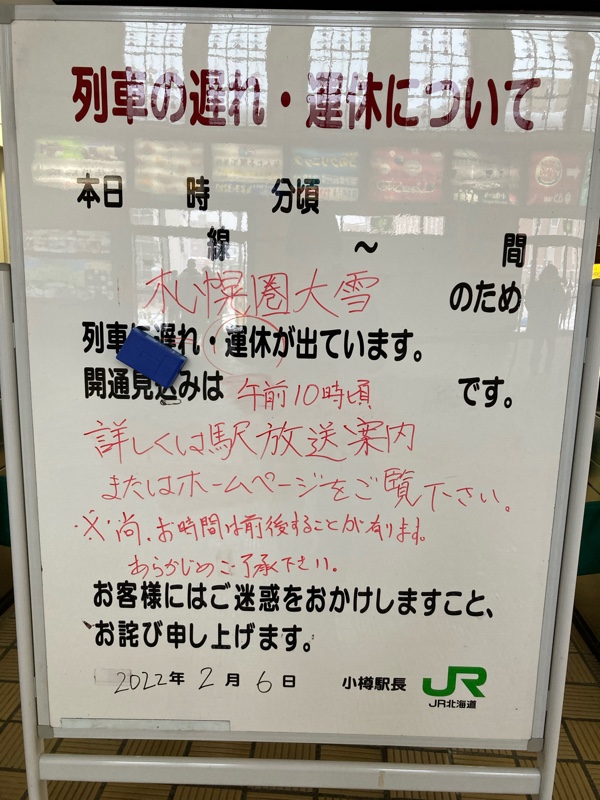 列車の遅れ・運休について
本日 時 分頃
線 ~ 間
札幌圏大雪 のため
列車に遅れ・運休が出ています。
開通見込みは 午前10時頃 です。
詳しくは駅放送案内
またはホームページをご覧下さい。
※尚、お時間は前後することが有ります。
あらかじめご了承下さい。
お客様にはご迷惑をおかけしますこと、
お詫び申し上げます。
2022年 2月 6日 小樽駅長 JR
JR北海道